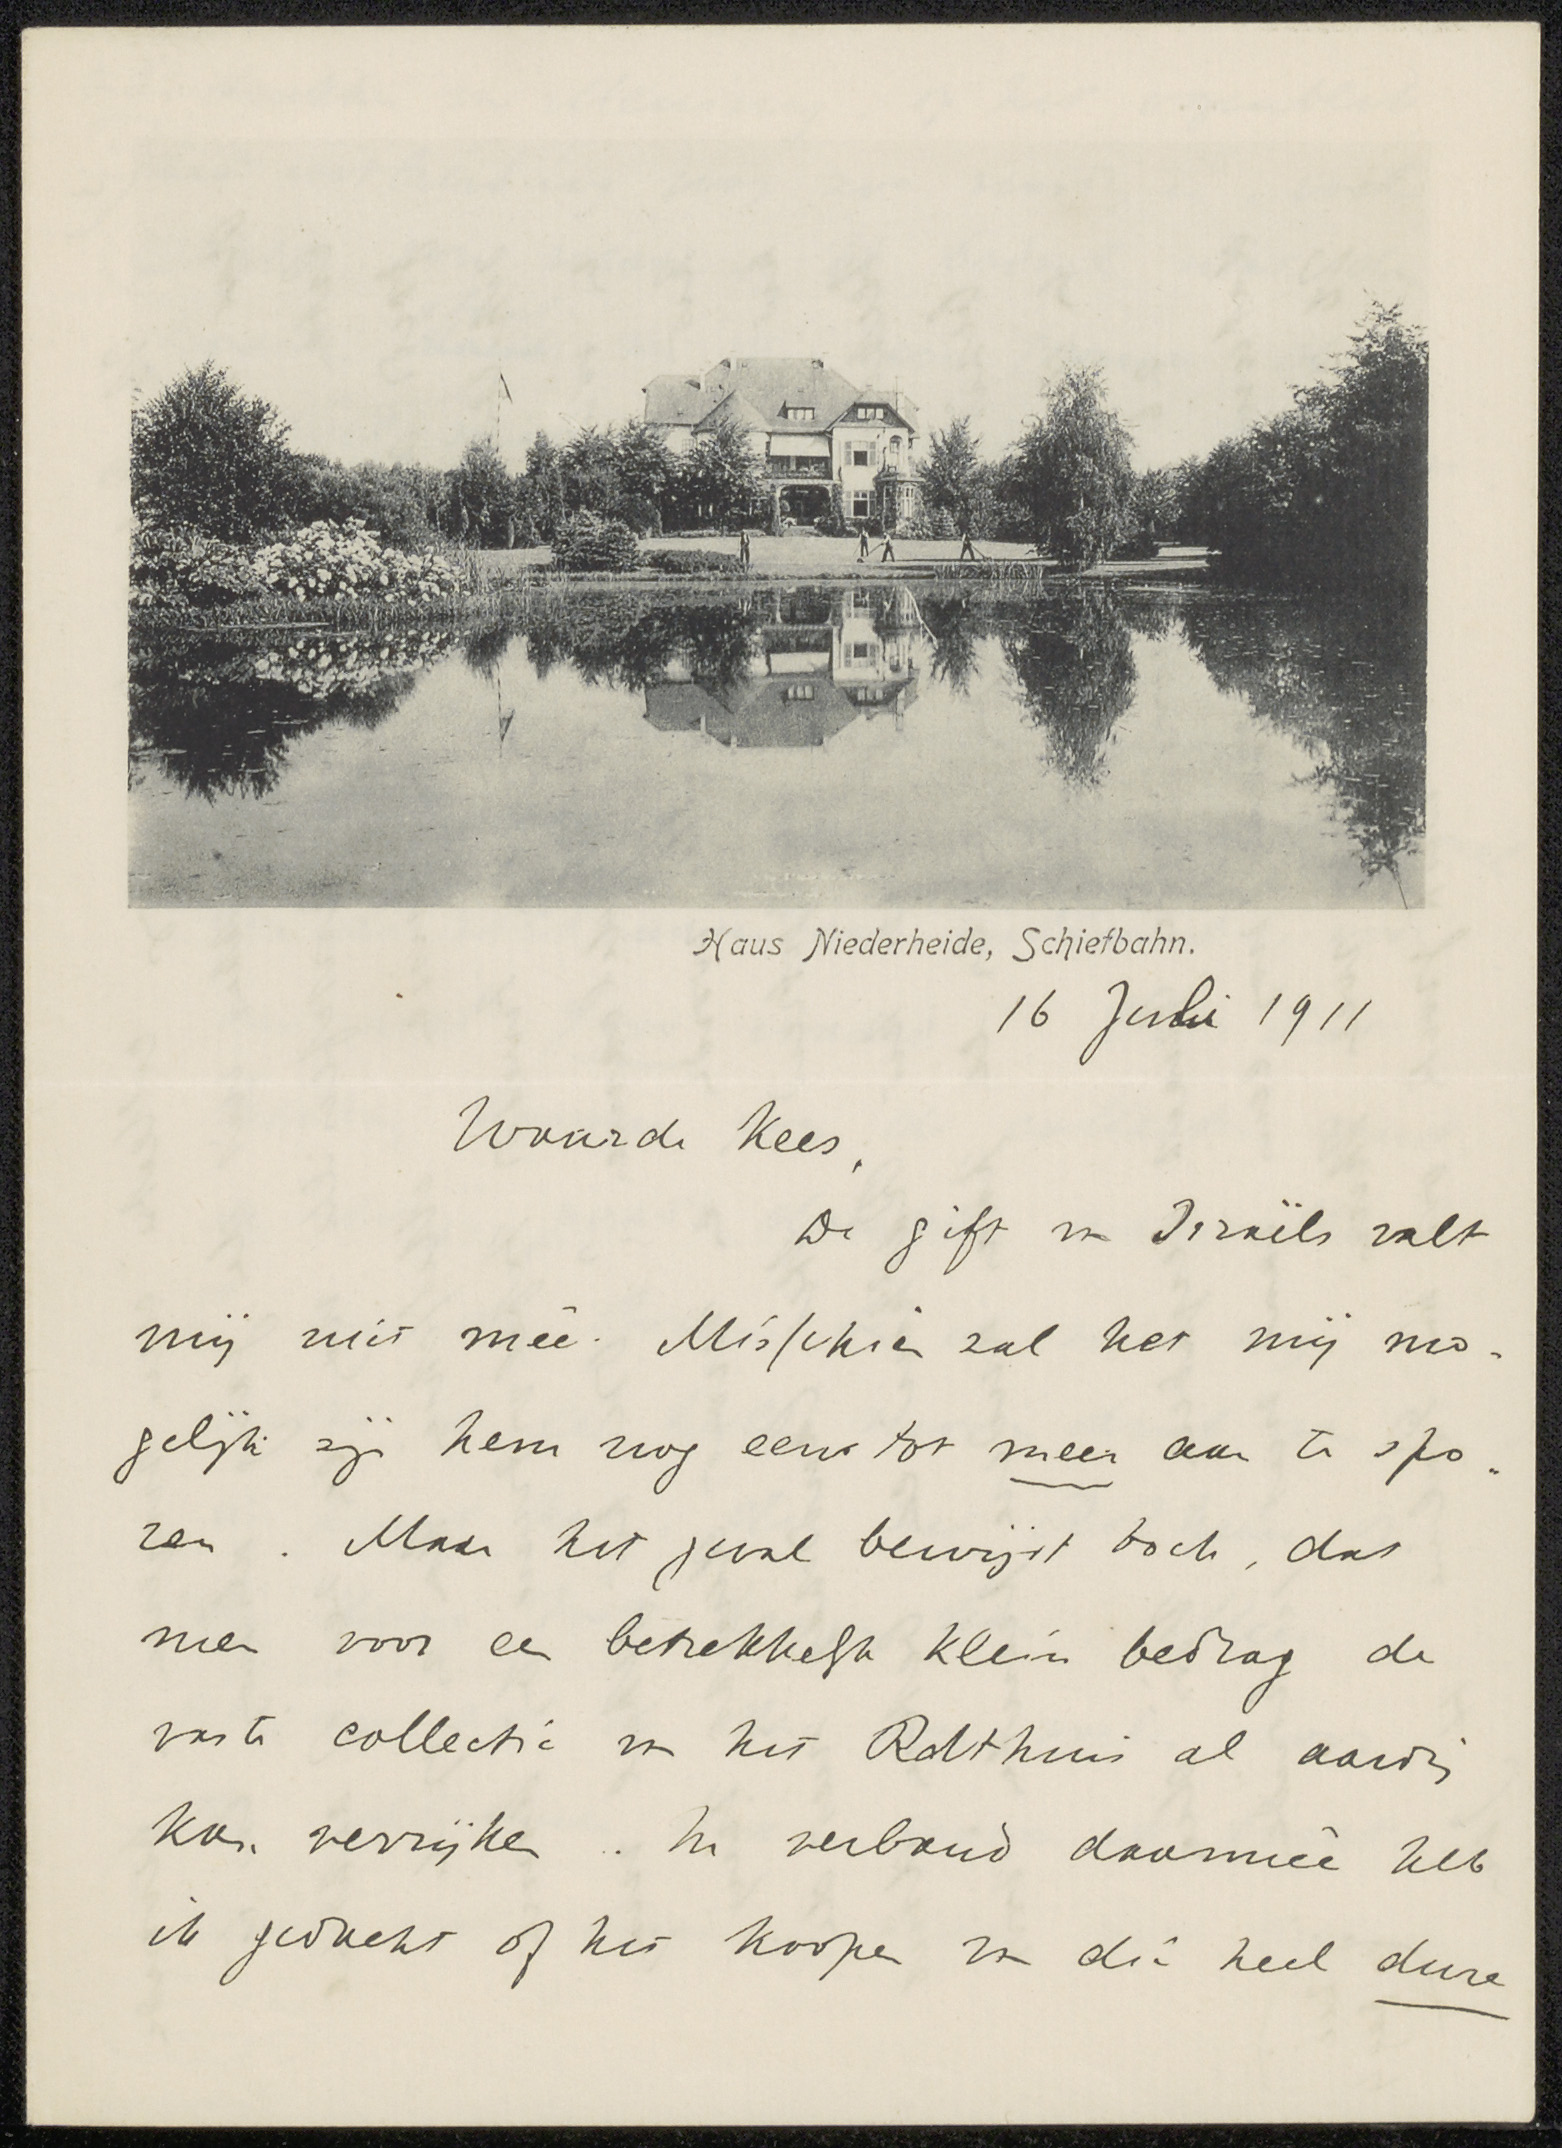 Haus Niederheide, Schiefbahn.
16 Juli 1911
Waarde Kees,
De gift van Israëls valt
mij niet meê. Misschien zal het mij mo-
gelijk zijn hem nog eens tot meer aan te spo-
ren. Maar het geval bewijst toch, dat
men voor een betrekkelijk klein bedrag de
vaste collectie van het Rdthuis al aardig
kan verrijken. In verband daarmeê heb
ik gedacht of het koopen van die heel dure